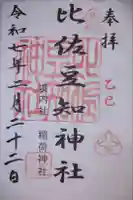 奉拝
乙巳
比佐豆知神社
境内社
稲荷神社
令和七年二月二十二日